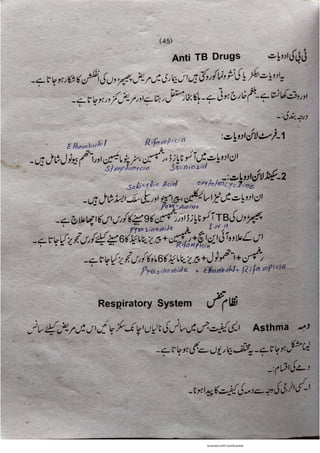 (45)
ٹی بی کی ادویات Anti TB Drugs
یہ ادویات بیکٹریا کی نشوونما کو روکتی ہیں اس بیماری میں مریض پھیپھڑوں کی انفکشن کا شکار ہو جاتا ہے۔
اور وقت کھانستا ہے۔ بلغم خارج ہوتی ہے۔ ہلکا بخار مستقل رہتا ہے اور مریض کمزور ہو جاتا ہے۔
درجہ بندی:۔
1۔فرسٹ لائن ادویات:
Ethambutol Rifampicin
ان ادویات میں آئسونایازڈ، رفیمپسین، سٹرپٹومائیسین اور ایتھم بیوٹول شامل ہیں۔
Streptomycin Isoniazid
2۔سیکنڈ لائن ادویات:
Salicylic Acid
ان ادویات میں ٹیٹراسائیکلین، اور سیلی سلک ایسڈ شامل ہیں۔
پھیپھڑوں کی TB آئسونایازڈ اور رفیمپسین کا 9 مہینے کا کورس اس کا اچھا علاج ہے۔
Pyrazinamide I.N.H
اس کے علاوہ آئی این ایچ + رفیمپسین + پیریزینامائیڈ کا 6 مہینے کیلئے کورس تجویز کیا جاتا ہے۔
Rifampicin
رفیمپسن + ایتھمبوٹول + پیریزینامائیڈ کا 6 ماہ کا کورس تجویز کیا جاتا ہے۔
+ Ethambutol + Rifampicin
نظام تنفس Respiratory System
دمہ Asthma ایسی کیفیت جس میں سانس کی نالیاں اچانک سکڑ جائیں اس میں مریض کیلئے سانس
لینا مشکل ہو جاتا ہے۔ یہ مختلف بیماریوں سے بھی ہو جاتا ہے۔
دمے کی اقسام:۔
۱۔ کسی الرجی کی وجہ سے دمہ کی کیفیت کا پیدا ہونا۔
Scanned with CamScanner